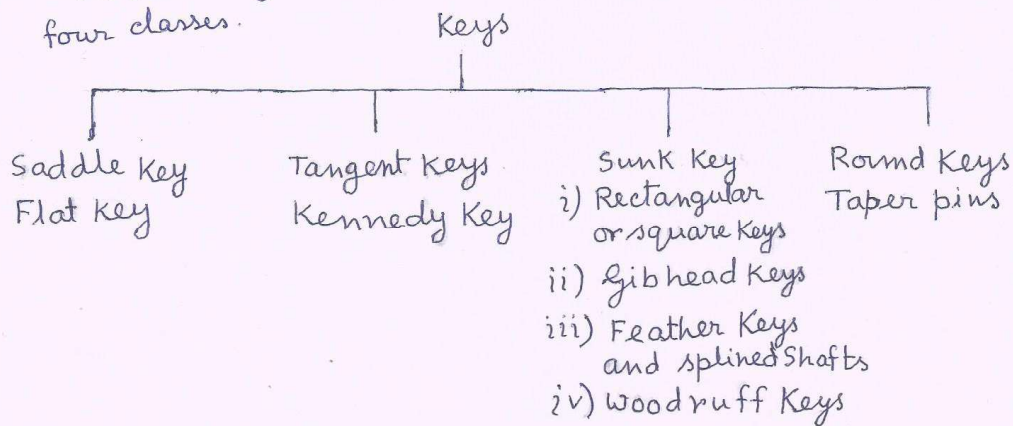 four classes.
Keys
Saddle Key
Flat Key
Tangent Keys
Kennedy Key
Sunk Key
i) Rectangular
or square Keys
ii) Gib head Keys
iii) Feather Keys
and splined Shafts
iv) Woodruff Keys
Round Keys
Taper pins